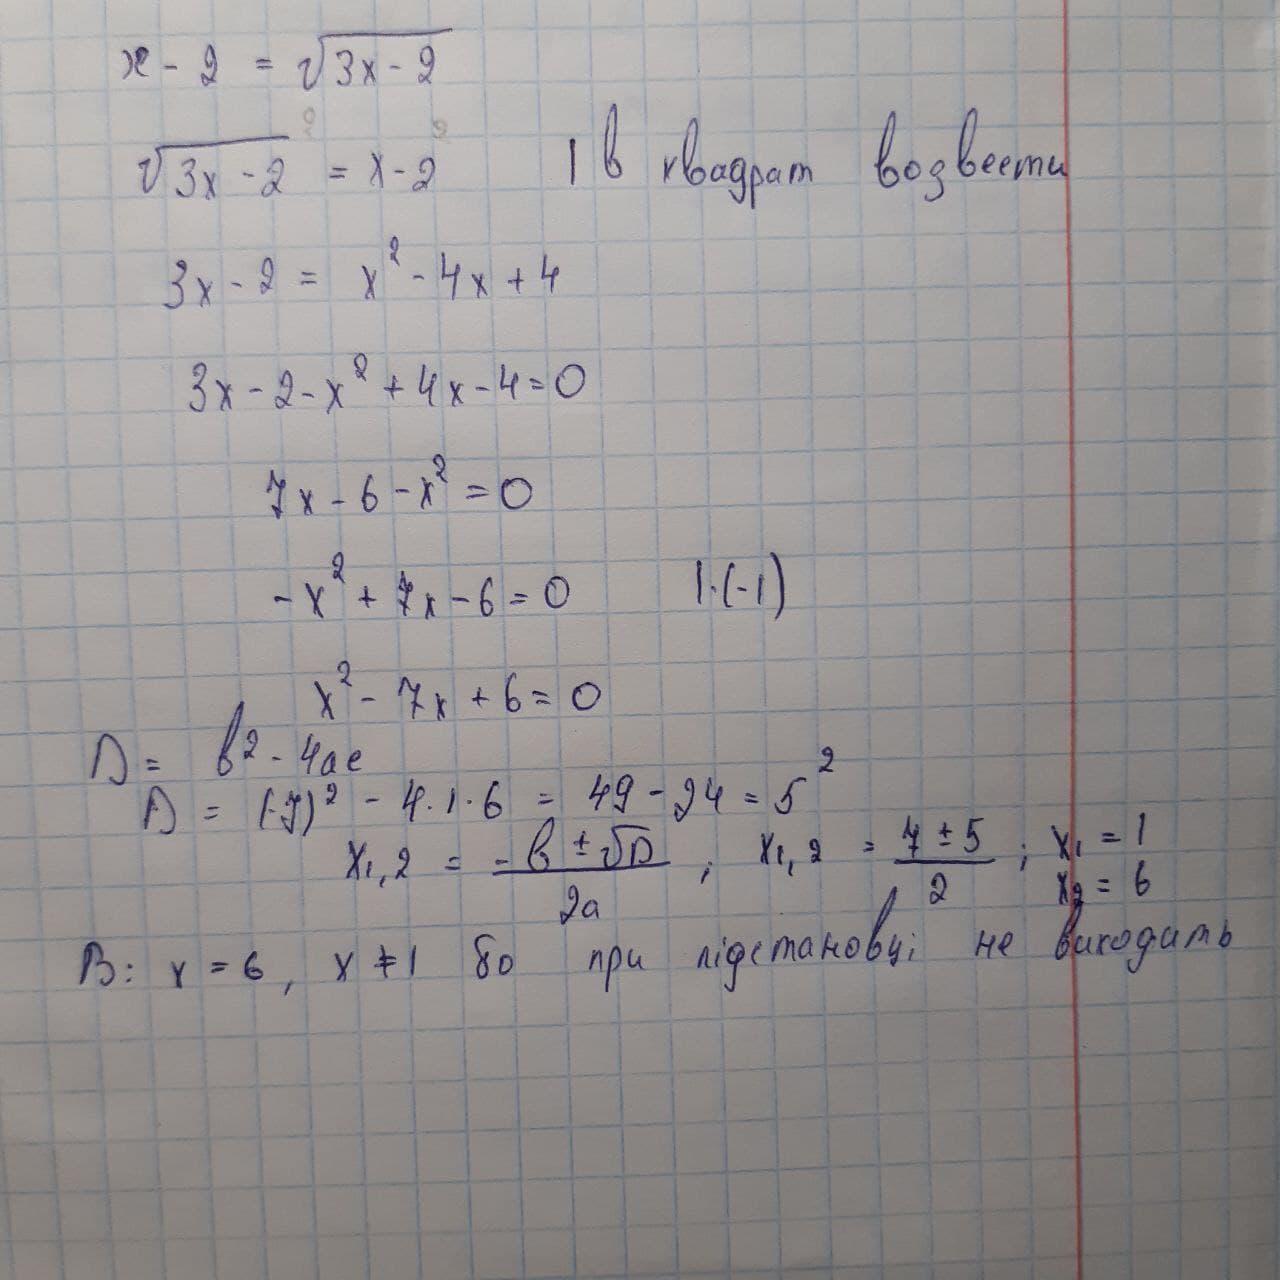 x - 2 = √3x - 2
√3x - 2 = x - 2 | в квадрат возвести
3x - 2 = x² - 4x + 4
3x - 2 - x² + 4x - 4 = 0
7x - 6 - x² = 0
-x² + 7x - 6 = 0 |·(-1)
x² - 7x + 6 = 0
D = b² - 4ac
D = (-7)² - 4·1·6 = 49 - 24 = 5²
x1,2 = -b ± √D / 2a ; x1,2 = 7 ± 5 / 2 ; x1 = 1
x2 = 6
В: x = 6, x ≠ 1 бо при підстановці не виходить